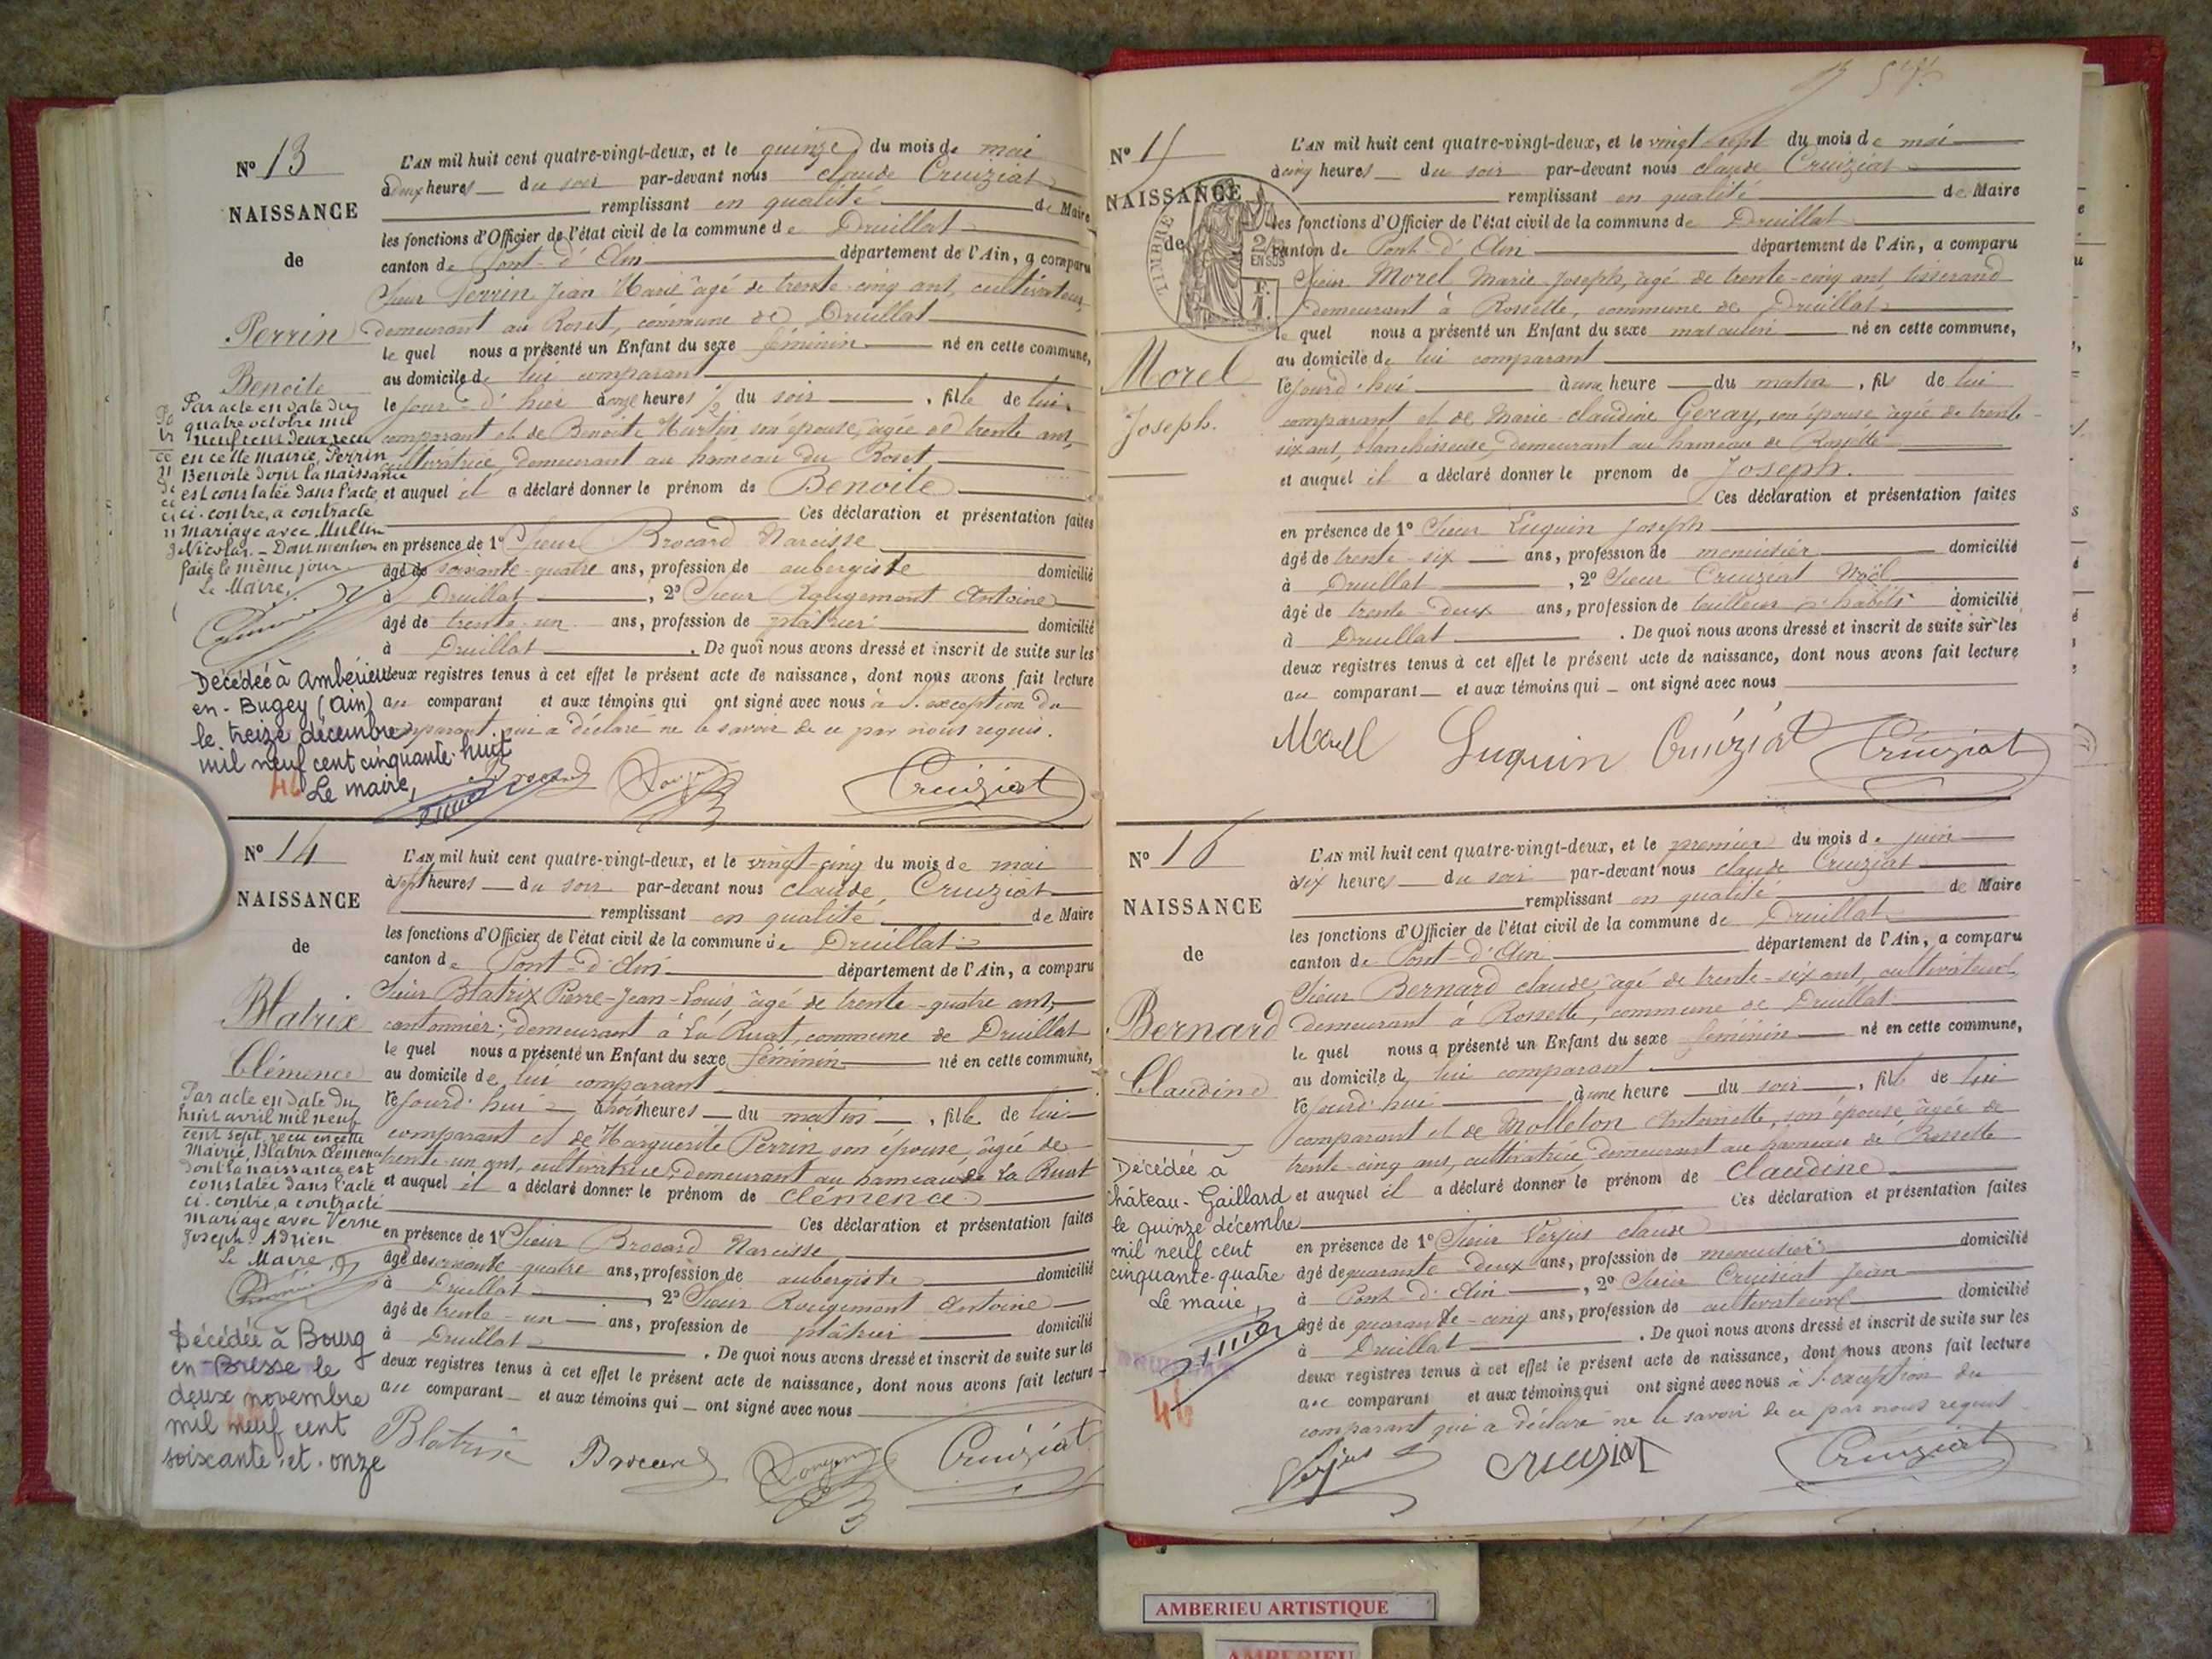 N° 13
NAISSANCE
de
Perrin
Benoite
Par acte en date du
quatre octobre mil
neuf cent deux reçu
en cette mairie, Perrin
Benoite dont la naissance
est constatée dans l'acte
ci-contre, a contracté
mariage avec Mullin
Nicolas. _ Dont mention
faite le même jour
Le Maire,
Décédée à Ambérieu
en-Bugey (Ain)
le treize décembre
mil neuf cent cinquante-huit
46 Le maire,
L'AN mil huit cent quatre-vingt-deux, et le quinze du mois de mai
à deux heures du soir par-devant nous claude Cruiziat
remplissant en qualité de Maire
les fonctions d'Officier de l'état civil de la commune de Druillat
canton de Pont-d'Ain département de l'Ain, a comparu
Sieur Perrin Jean Marie âgé de trente-cinq ans, cultivateur,
demeurant au Roset, commune de Druillat
le quel nous a présenté un Enfant du sexe féminin né en cette commune,
au domicile de lui comparant
le jour-d'hier à onze heures ½ du soir, fille de lui
comparant et de Benoite Martin, son épouse, âgée de trente ans,
cultivatrice, demeurant au hameau du Roset
et auquel il a déclaré donner le prénom de Benoite
Ces déclaration et présentation faites
en présence de 1° Sieur Brocard Narcisse
âgé de soixante-quatre ans, profession de aubergiste domicilié
à Druillat, 2° Sieur Rougemont Antoine
âgé de trente-un ans, profession de plâtrier domicilié
à Druillat. De quoi nous avons dressé et inscrit de suite sur les
deux registres tenus à cet effet le présent acte de naissance, dont nous avons fait lecture
au comparant et aux témoins qui ont signé avec nous à l'exception du
comparant qui a déclaré ne le savoir de ce par nous requis.
Brocard Cruiziat
N° 14
NAISSANCE
de
Blatrix
Clémence
Par acte en date du
huit avril mil neuf
cent sept, reçu en cette
Mairie, Blatrix Clémence
dont la naissance est
constatée dans l'acte
ci-contre, a contracté
mariage avec Verne
Joseph Adrien
Le Maire,
Décédée à Bourg
en-Bresse le
deux novembre
mil neuf cent
soixante-et-onze
L'AN mil huit cent quatre-vingt-deux, et le vingt-cinq du mois de mai
à sept heures du soir par-devant nous claude Cruiziat
remplissant en qualité de Maire
les fonctions d'Officier de l'état civil de la commune de Druillat
canton de Pont-d'Ain département de l'Ain, a comparu
Sieur Blatrix Pierre-Jean-Louis, âgé de trente-quatre ans,
cantonnier, demeurant à La Ruat, commune de Druillat
le quel nous a présenté un Enfant du sexe féminin né en cette commune,
au domicile de lui comparant
le jourd'hui à trois heures du matin, fille de lui
comparant et de Marguerite Perrin son épouse, âgée de
trente-un ans, cultivatrice, demeurant au hameau de La Ruat
et auquel il a déclaré donner le prénom de Clémence
Ces déclaration et présentation faites
en présence de 1° Sieur Brocard Narcisse
âgé de soixante-quatre ans, profession de aubergiste domicilié
à Druillat, 2° Sieur Rougemont Antoine
âgé de trente-un ans, profession de plâtrier domicilié
à Druillat. De quoi nous avons dressé et inscrit de suite sur les
deux registres tenus à cet effet le présent acte de naissance, dont nous avons fait lecture
au comparant et aux témoins qui ont signé avec nous
Blatrix Brocard Cruiziat
N° 15
NAISSANCE
de
TIMBRE
Morel
Joseph.
L'AN mil huit cent quatre-vingt-deux, et le vingt-sept du mois de mai
à cinq heures du soir par-devant nous claude Cruiziat
remplissant en qualité de Maire
les fonctions d'Officier de l'état civil de la commune de Druillat
canton de Pont-d'Ain département de l'Ain, a comparu
Sieur Morel Marie-Joseph, âgé de trente-cinq ans, tisserand
demeurant à Rossette, commune de Druillat
le quel nous a présenté un Enfant du sexe masculin né en cette commune,
au domicile de lui comparant
le jourd'hui à une heure du matin, fils de lui
comparant et de Marie-claudine Geray, son épouse âgée de trente-
six ans, blanchisseuse, demeurant au hameau de Rossette
et auquel il a déclaré donner le prenom de Joseph.
Ces déclaration et présentation faites
en présence de 1° Sieur Luquin Joseph
âgé de trente-six ans, profession de menuisier domicilié
à Druillat, 2° Sieur Cruiziat Noël
âgé de trente-deux ans, profession de tailleur d'habits domicilié
à Druillat. De quoi nous avons dressé et inscrit de suite sur les
deux registres tenus à cet effet le présent acte de naissance, dont nous avons fait lecture
au comparant et aux témoins qui ont signé avec nous
Morel Luquin Cruiziat Cruiziat
N° 16
NAISSANCE
de
Bernard
Claudine
Décédée à
Château-Gaillard
le quinze décembre
mil neuf cent
cinquante-quatre
Le maire,
46
L'AN mil huit cent quatre-vingt-deux, et le premier du mois de juin
à six heures du soir par-devant nous claude Cruiziat
remplissant en qualité de Maire
les fonctions d'Officier de l'état civil de la commune de Druillat
canton de Pont-d'Ain département de l'Ain, a comparu
Sieur Bernard claude, âgé de trente-six ans, cultivateur
demeurant à Rossette, commune de Druillat
le quel nous a présenté un Enfant du sexe féminin né en cette commune,
au domicile de lui comparant
le jourd'hui à une heure du soir, fille de lui
comparant et de Molleton Antoinette, son épouse âgée de
trente-cinq ans, cultivatrice demeurant au hameau de Rossette
et auquel il a déclaré donner le prénom de Claudine
Ces déclaration et présentation faites
en présence de 1° Sieur Verjus claude
âgé de quarante deux ans, profession de menuisier domicilié
à Pont-d'Ain, 2° Sieur Cruiziat Jean
âgé de quarante-cinq ans, profession de cultivateur domicilié
à Druillat. De quoi nous avons dressé et inscrit de suite sur les
deux registres tenus à cet effet le présent acte de naissance, dont nous avons fait lecture
au comparant et aux témoins qui ont signé avec nous à l'exception du
comparant qui a déclaré ne le savoir de ce par nous requis
Verjus Cruiziat Cruiziat
AMBERIEU ARTISTIQUE
AMBERIEU